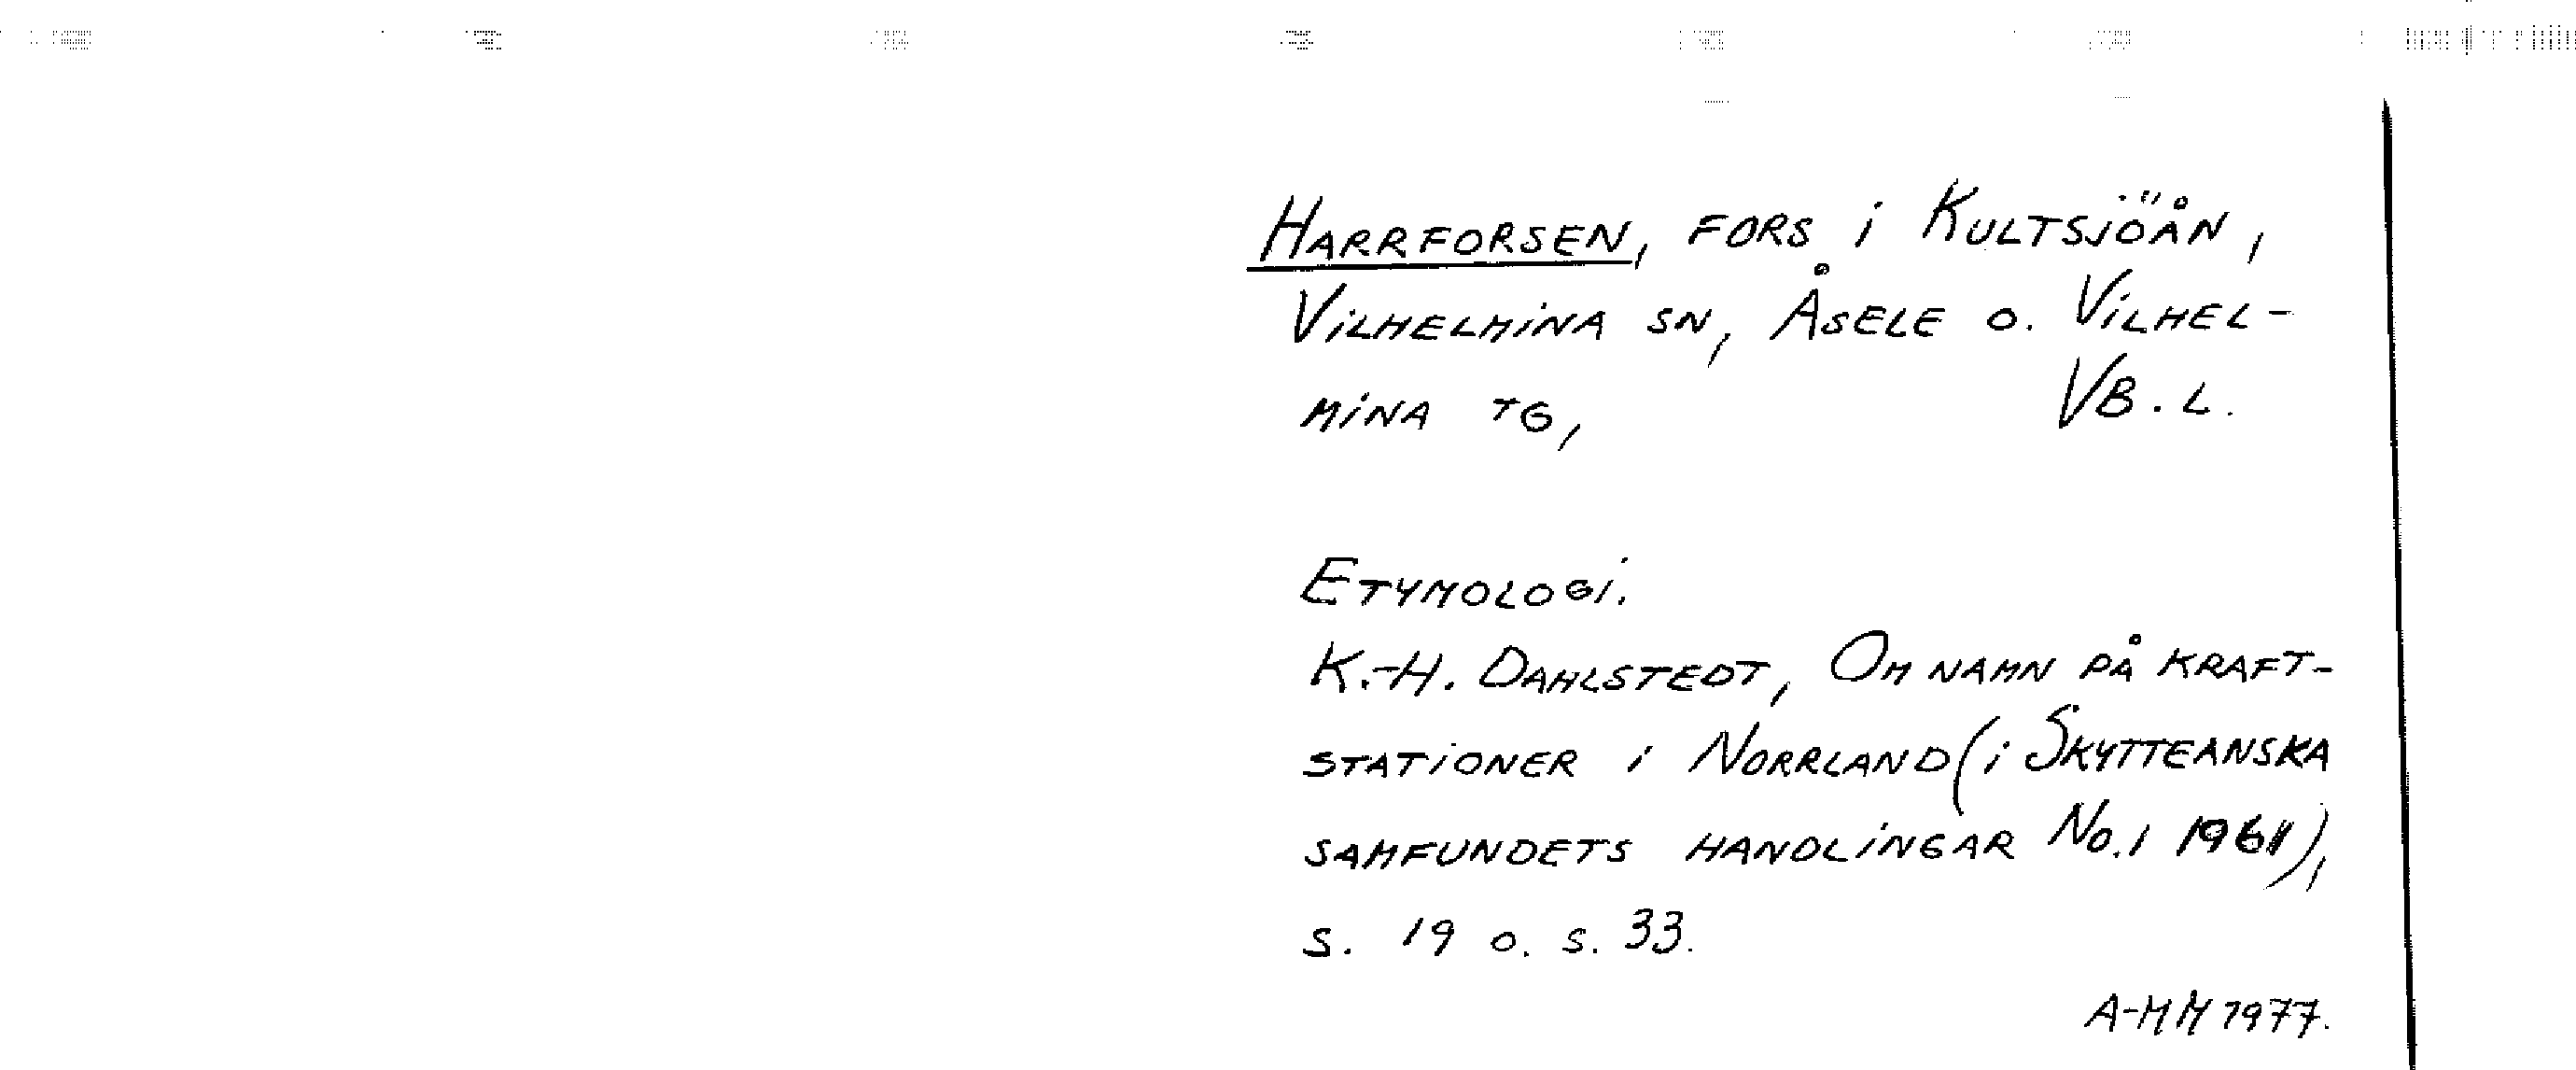 HARRFORSEN, FORS i KULTSJÖÅN,
VILHELMINA SN, ÅSELE O. VILHEL-
MINA TG, VB.L.
ETYMOLOGI.
K.-H. DAHLSTEDT, OM NAMN PÅ KRAFT-
STATIONER i NORRLAND (i SKYTTEANSKA
SAMFUNDETS HANDLINGAR No. 1 1961),
S. 19 O. S. 33.
A-MM 1977.